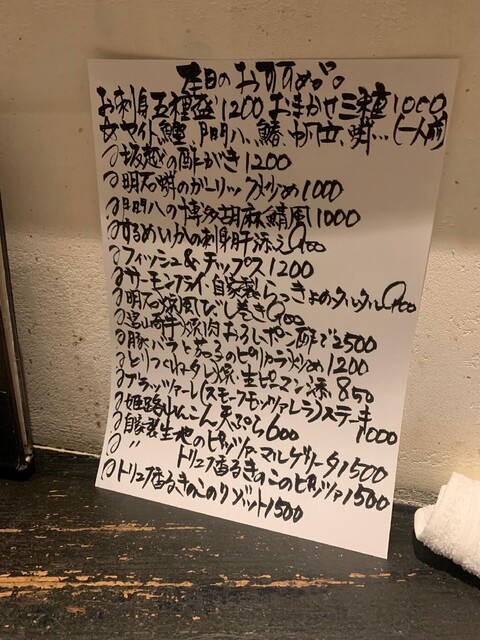 本日のおすすめ。
お刺身五種盛1200 おまかせ三種1000
、門門八、鰆、帆立、蛸…(一人前)
坂越の酢がき1200
明石蛸のガーリック炒め1000
門門八の博多胡麻鯖風1000
するめいかの刺身肝添え900
フィッシュ&チップス1200
サーモンフライ 自家製らっきょのタルタル900
明石焼風だし巻き900
富山牛焼肉おろしポン酢で2500
豚バラと茄子のピリカラ炒め1200
とりつくねタレ焼・生ピーマン添850
ブラッツァーレ(スモークモッツァレラ)ステーキ1000
姫路れんこん天ぷら600
自家製生地のピッツァマルゲリータ1500
〃 トリュフ香るきのこのピッツァ1500
トリュフ香るきのこのリゾット1500